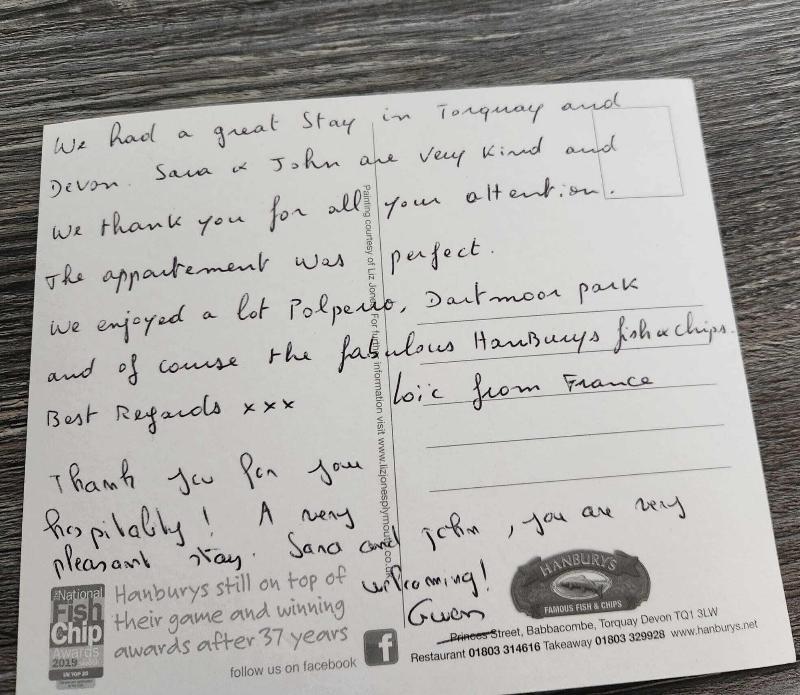 We had a great Stay in Torquay and
Devon. Sara & John are very kind and
we thank you for all your attention.
The appartement was perfect.
We enjoyed a lot Polperro, Dartmoor park
and of course the fabulous HanBurys fish & chips.
Best Regards xxx Loïc from France
Thank you for your
hospitality! A very
pleasant stay. Sara and John, you are very
welcoming!
Gwen
Painting courtesy of Liz Jones. For further information visit www.lizjonesplymouth.co.uk
The National
Fish
Chip
Awards
2019
UK TOP 20
Hanburys still on top of
their game and winning
awards after 37 years
follow us on facebook
f
HANBURYS
FAMOUS FISH & CHIPS
Princes Street, Babbacombe, Torquay Devon TQ1 3LW
Restaurant 01803 314616 Takeaway 01803 329928 www.hanburys.net